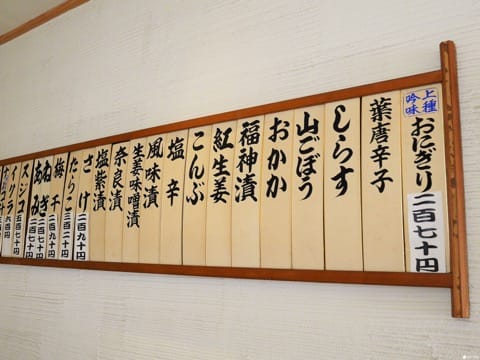 上種吟味
おにぎり 二百七十円
葉唐辛子
しらす
山ごぼう
おかか
福神漬
紅生姜
こんぶ
塩辛
風味漬
生姜味噌漬
奈良漬
塩紫漬
さけ 二百九十円
たらこ 三百二十円
梅干 二百七十円
ねぎ 二百七十円
あみ 二百七十円
スジコ 五百七十円
イクラ